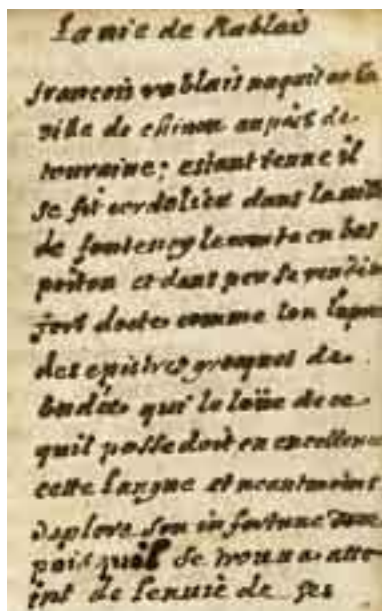 La vie de Rablais
francois rablais naquit en la
ville de chinon au païs de
touraine; estant ienne il
se fit cordelier dans la vill
de fontenoy le conte en bas
poitou et dans peu se rendit
fort docte comme lon
des epistres grecques de
budée qui le loüe de ce
quil possedoit en excellence
cette langue et neantmoins
deplore son infortune
puis quil se trouua atte
int de lenuie de ses